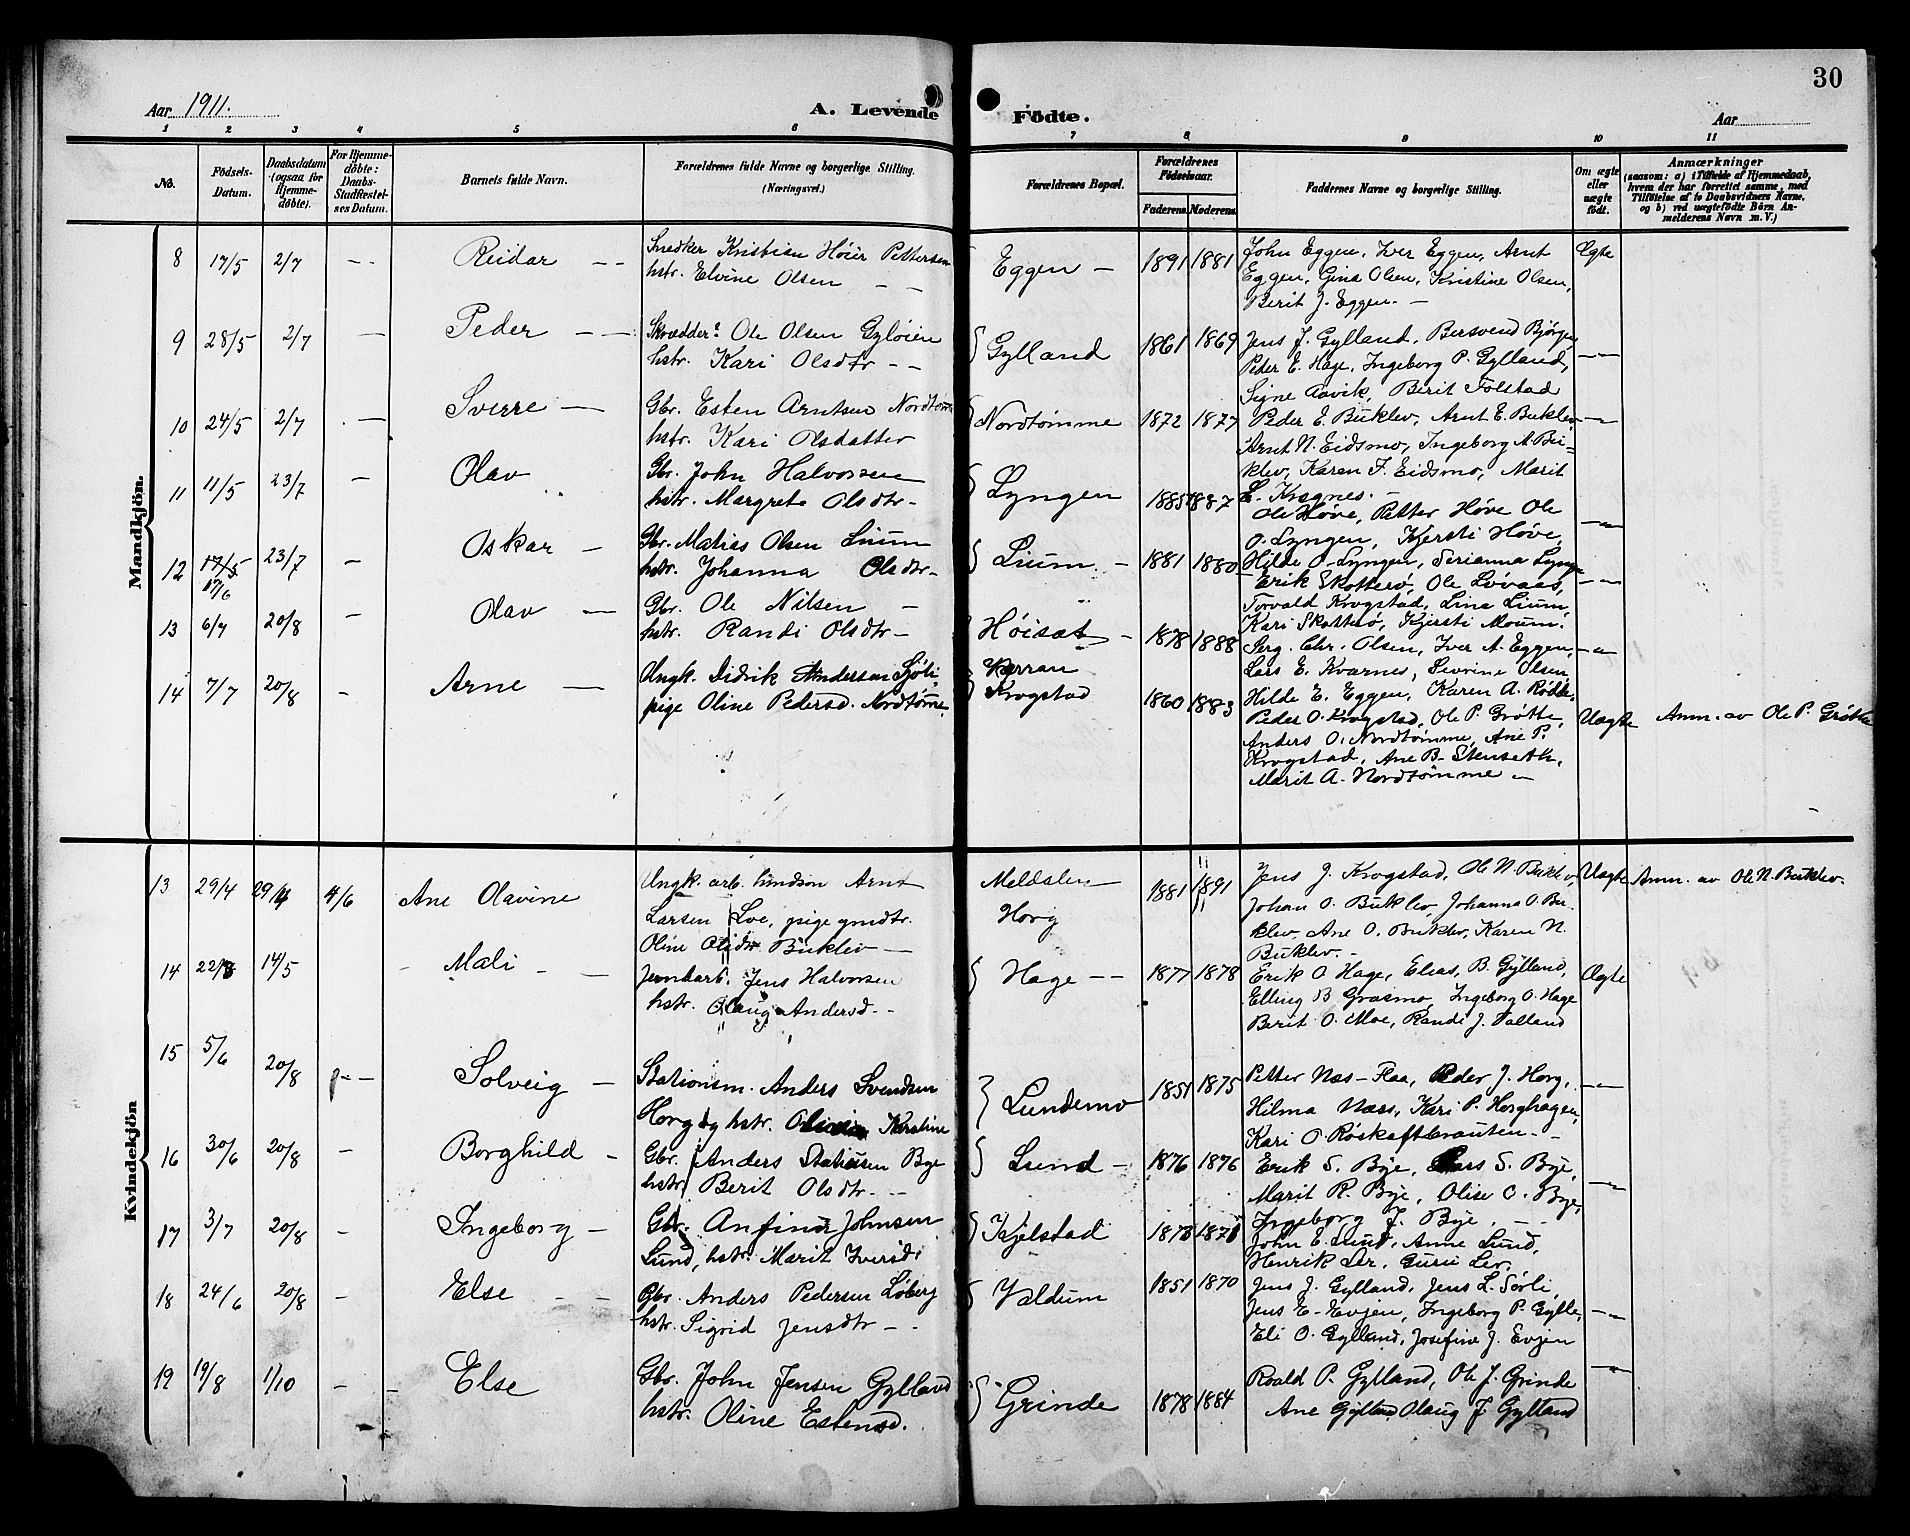 30
Aar 1911.
A. Levende Födte.
Aar
1 2 3 4 5 6 7 8 9 10 11
No.
Födsels-Datum.
Daabsdatum (ogsaa for Hjemme-döbte).
For Hjemme-döbte: Daabs-Stadfæstel-ses Datum.
Barnets fulde Navn.
Forældrenes fulde Navne og borgerlige Stilling. (Næringsvei.)
Forældrenes Bopæl.
Forældrenes Födselsaar.
Faderens. Moderens.
Faddernes Navne og borgerlige Stilling.
Om ægte eller uægte födt.
Anmærkninger
(saasom: a) i Tilfælde af Hjemmedaab,
hvem der har forrettet samme, med
Tilföielse af to Daabsvidners Navne,
og b) ved uægtefödte Börn An-
melderens Navn m. V.)
Mandkjön.
8 17/5 2/7 -- Reidar -- Snedker Kristian Höier Pettersen
hstr. Elvine Olsen --
Eggen - 1891 1881
John Eggen, Iver Eggen, Arnt
Eggen, Gina Olsen, Kristine Olsen,
Berit J. Eggen. -
Ægte
9 28/5 2/7 - Peder -- Skrædder Ole Olsen Gylöien
hstr. Kari Olsdtr --
Gylland 1861 1869
Jens J. Gylland, Bersvend Bjørgen,
Peder E. Hage, Ingeborg P. Gylland,
Signe Aavik, Berit Folstad
-"-
10 24/5 2/7 - Sverre - Gbr. Esten Arntsen Nordtømme
hstr. Kari Olsdatter
Nordtømme 1872 1877
Peder E. Buklev, Arnt E. Buklev,
Arnt N. Eidsmo, Ingeborg A. Bu-
klev, Karen F. Eidsmo, Marit
L. Kregnes. -
-"-
11 11/5 23/7 - Olav Gbr. John Halvorsen
hstr. Margrete Olsdtr -
Lyngen 1885 1887
Ole Høve, Petter Høve Ole
O. Lyngen, Kjersti Høve,
Hilde O. Lyngen, Serianna Lyngen
-"-
12 17/5 17/6 23/7 - Oskar - Gbr. Matias Olsen Lium
hstr. Johanna Olsdtr -
Lium - 1881 1880
Erik Skotterö, Ole Løvaas,
Torvald Krogstad, Lina Lium,
Kari Skotterö, Kjersti Moum.
-"-
13 6/7 20/8 - Olav - Gbr. Ole Nilsen -
hstr. Randi Olsdtr -
Höisæt - 1878 1888
Serg. Chr. Olsen, Iver A. Eggen,
Lars E. Kvarnes, Sevrine Olsen
Hilde E. Eggen, Karen A. Rødde
-"-
14 7/7 20/8 - Arne - Ungk. Didrik Andersen Sjöli,
pige Oline Pedersd. Nordtømme,
Krogstad 1860 1883
Peder O. Krogstad, Ole P. Grøtte,
Anders O. Nordtømme, Ane P.
Krogstad, Ane B. Stenseth,
Marit A. Nordtømme -
Uægte Anm. av Ole P. Grøtte
Kvindekjön
13 29/4 29/4 4/6 Ane Olavine Ungk. arb. Arnt
Larsen Loe, pige gmdtr.
Oline Olsdtr Buklev -
Meldalen
Horg
1881 1891
Jens J. Krogstad, Ole N. Buklev,
Johan O. Buklev, Johanna O. Bu-
klev, Ane O. Buklev, Karen N.
Buklev. -
Uægte Anm. av Ole N. Buklev.
14 22/3 14/5 - Mali - Jernbarb. Jens Halvorsen
hstr. Olaug Andersd. --
Hage -- 1877 1878
Erik O Hage, Elias, B. Gylland,
Elling B Grasmo, Ingeborg O. Hage
Berit O. Moe, Randi J. Valland
Ægte
15 5/6 20/8 -- Solveig - Stationsm. Anders Svendsen
Horg og hstr. Olivia Kerstine
Lundemo 1851 1875
Petter Næs - Flaa, Peder J. Horg,
Hilma Næss, Kari P. Horghagen,
Kari O. Røskaftbrauten. -
-"-
16 30/6 20/8 - Borghild - Gbr. Anders Bye
hstr. Berit Olsdtr. --
Lund - 1876 1876
Erik S. Bye, Lars S. Bye,
Marit R. Bye, Olise O. Bye,
Ingeborg J. Bye. --
-"-
17 3/7 20/8 - Ingeborg - Gbr. Anfind Johnsen
Lund, hstr. Marit Iversd.
Kjelstad 1878 1871
John E. Lund, Anne Lund,
Henrik Ler, Guru Ler.
18 24/6 20/8 - Else -- Gbr. Anders Pedersen Løberg
hstr. Sigrid Jensdtr --
Valdum 1851 1870
Jens J. Gylland, Jens L. Sørli,
Jens E. Evjen, Ingeborg P. Gylle,
Eli O. Gylland, Josefine J. Evjen
-"-
19 19/8 1/10 -- Else Gbr. John Jensen Gylland
hstr. Oline Estensd.
Grinde 1878 1884
Roald P. Gylland, Ole J. Grinde
Ane Gylland, Olaug J. Gylland
-"-